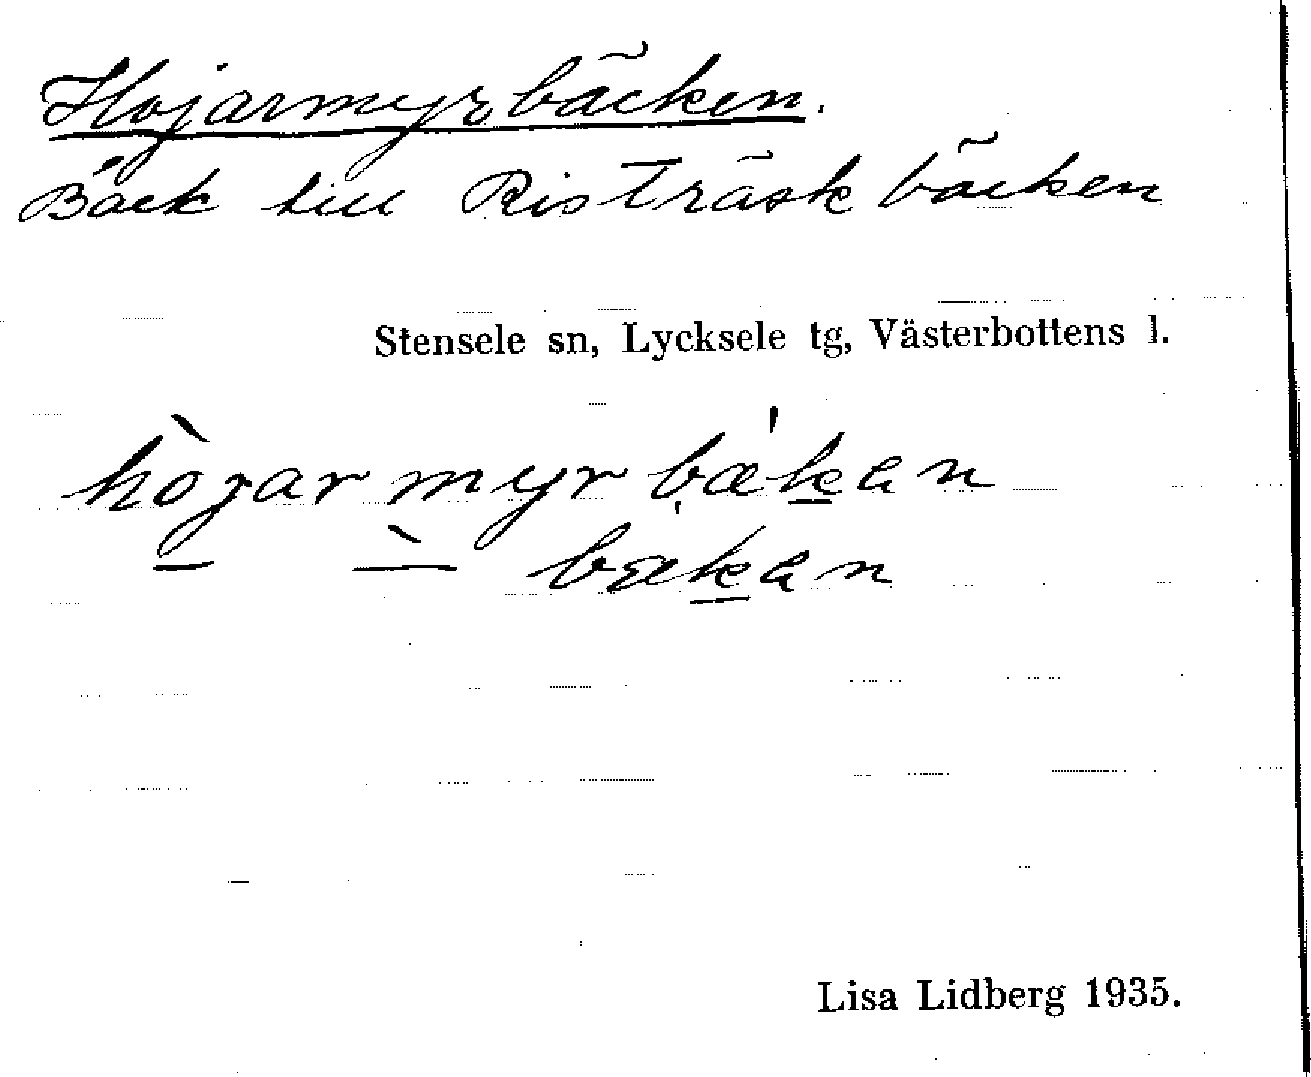 Hojarmyrbäcken.
Bäck till Risträskbäcken
Stensele sn, Lycksele tg, Västerbottens l.
hòjarmyrbækan
bækan
Lisa Lidberg 1935.